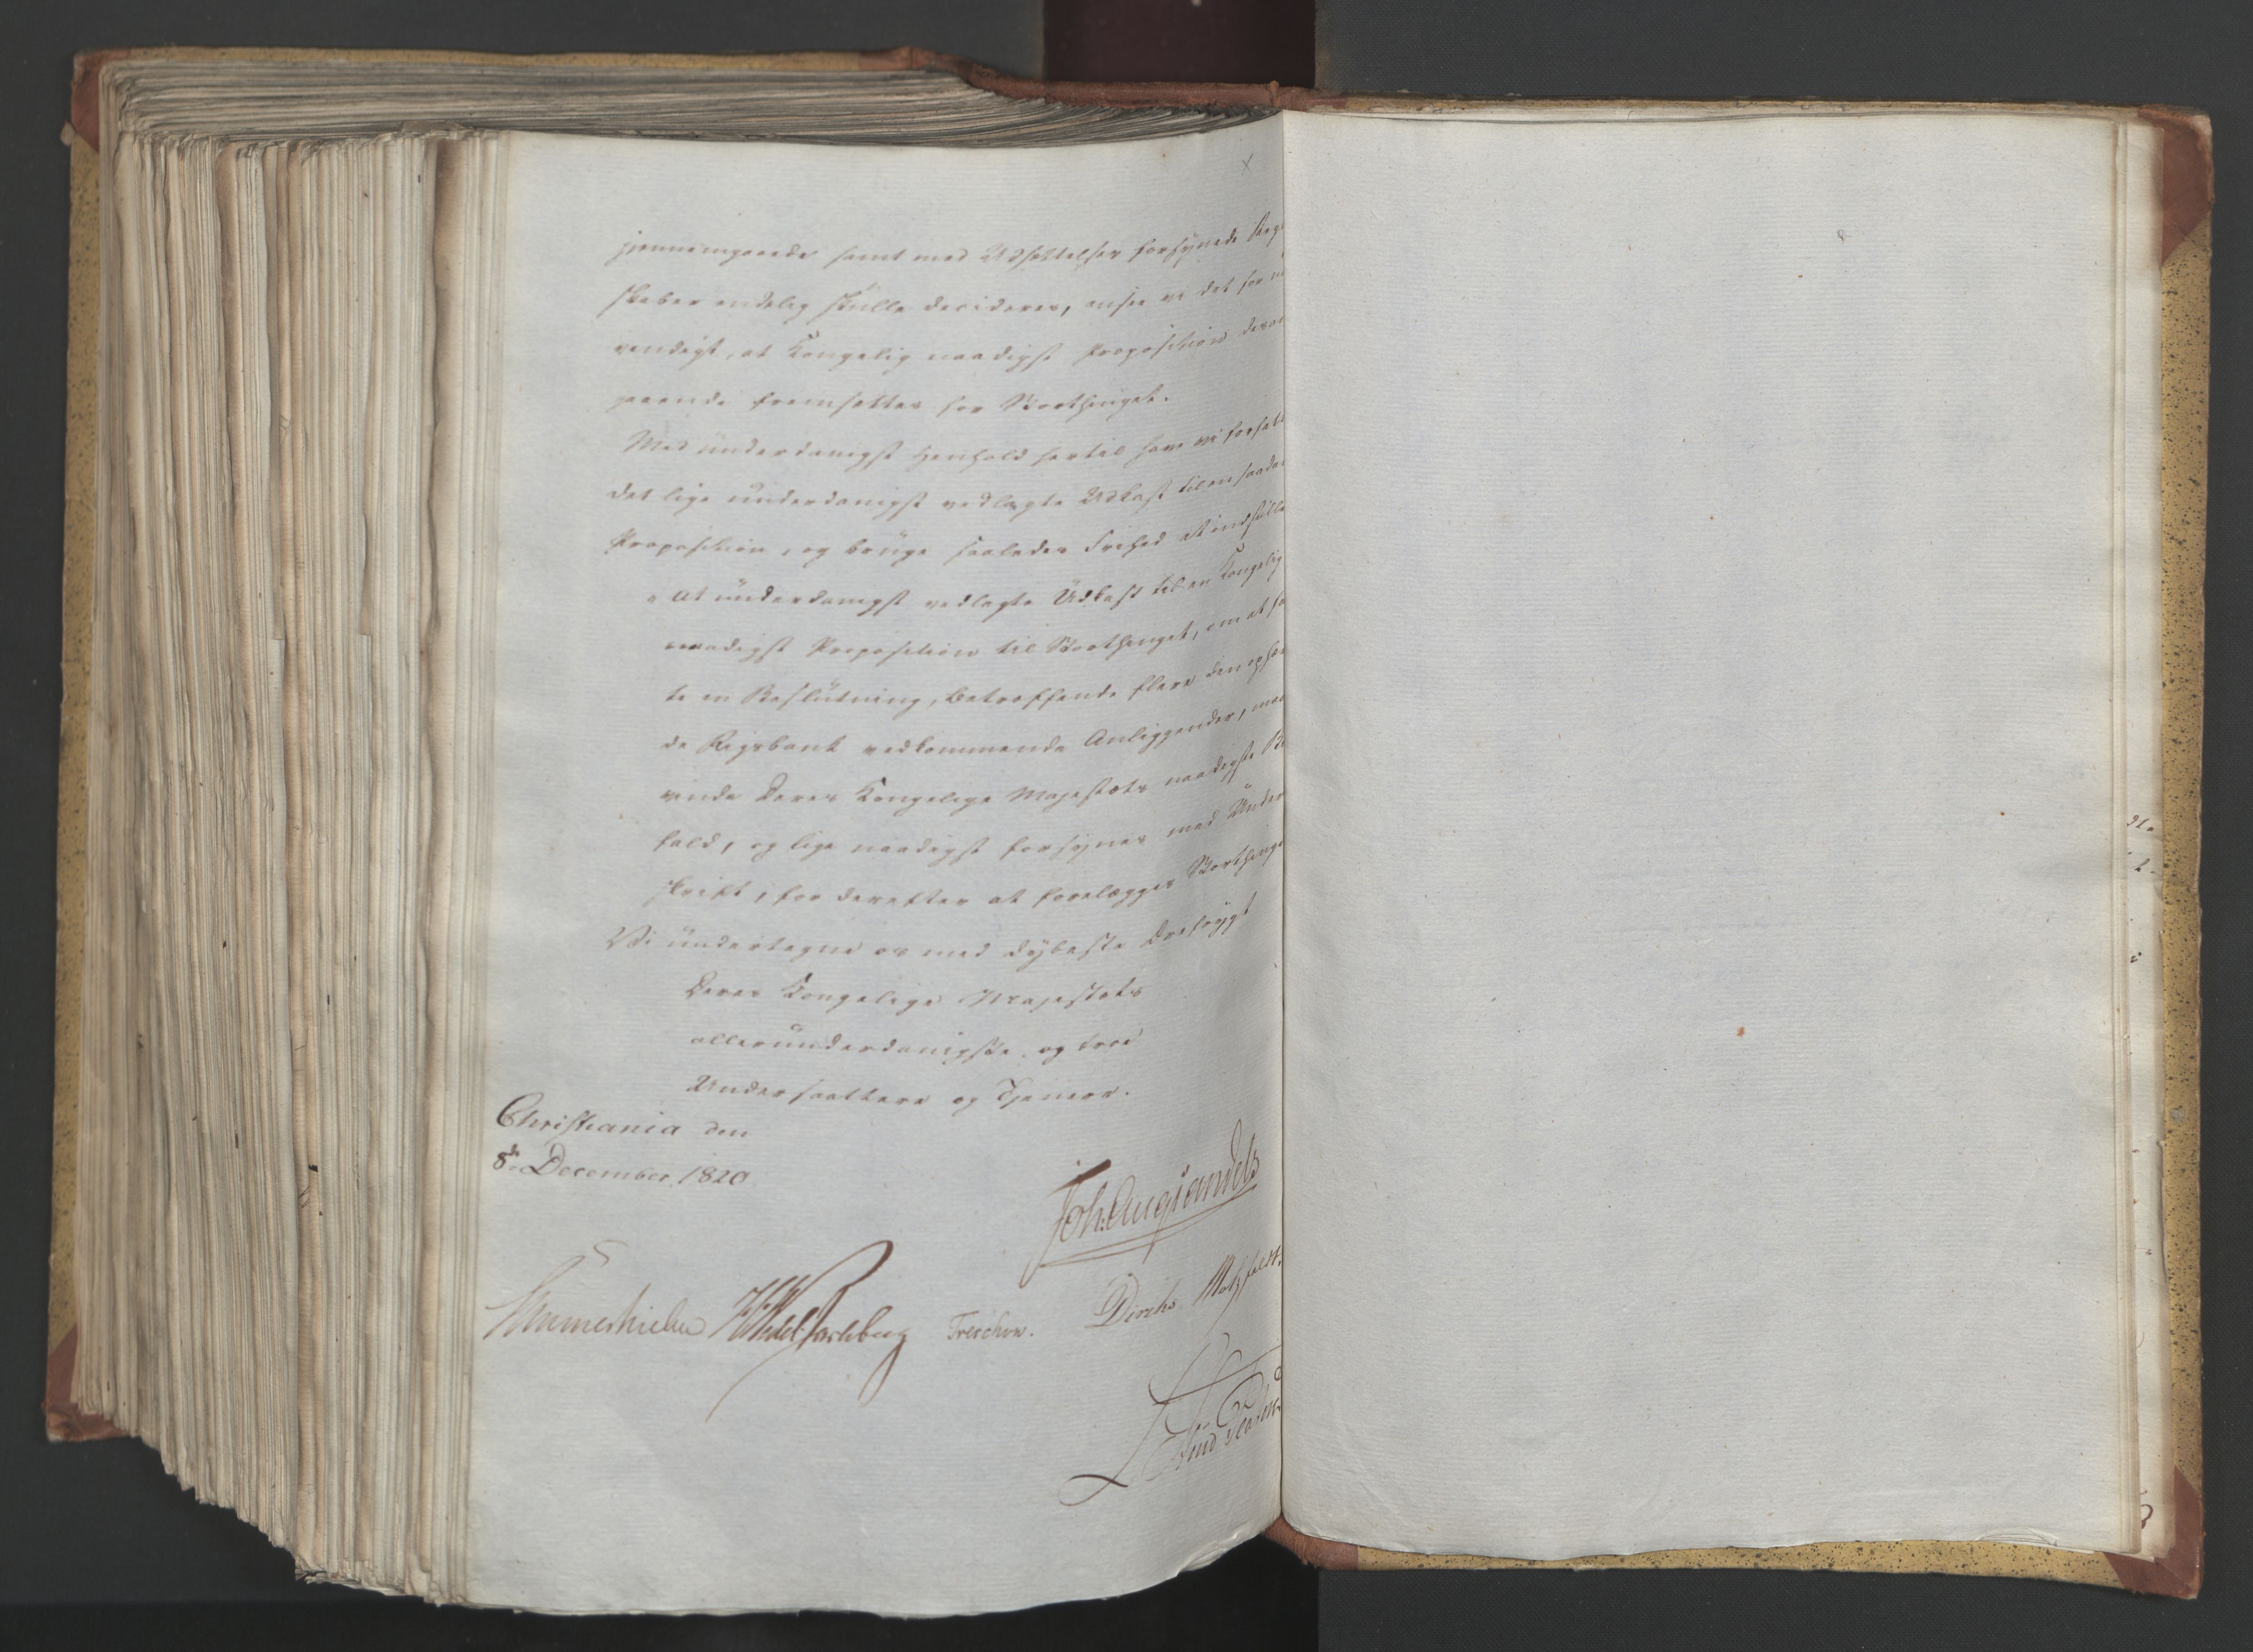 jennemgaaede samt med Udsættelser forsynede Reg
skaber endelig skulle decideres, ansee vi det for n
vendigt, at Kongelig naadigst Proposition desan
gaaende fremsættes for Storthinget.
Med underdanigst Henhold hertil have vi forfatt
det lige underdanigst vedlagte Udkast til en saadan
Proposition, og bruge saaledes Frihed at indstille
" At underdanigst vedlagte Udkast til en Kongelig
naadigst Proposition til Storthinget, om at fa
te en Beslutning, betreffende flere den ophæ
de Rigsbank vedkommende Anliggender, maa
vinde Deres Kongelige Majestæts naadigste Bi
fald, og lige naadigst forsynes med Under
skrift, for derefter at forelægges Storthinge
Vi undertegne os med dybeste Ærefrygt
Deres Kongelige Majestæts
allerunderdanigste og troe
Undersaattere og Tjenere.
Christiania den
8de December 1820
Joh: Aug Sandels
Sommerhielm HWedel Jarlsberg Treschow. Diriks Motzfeldt.